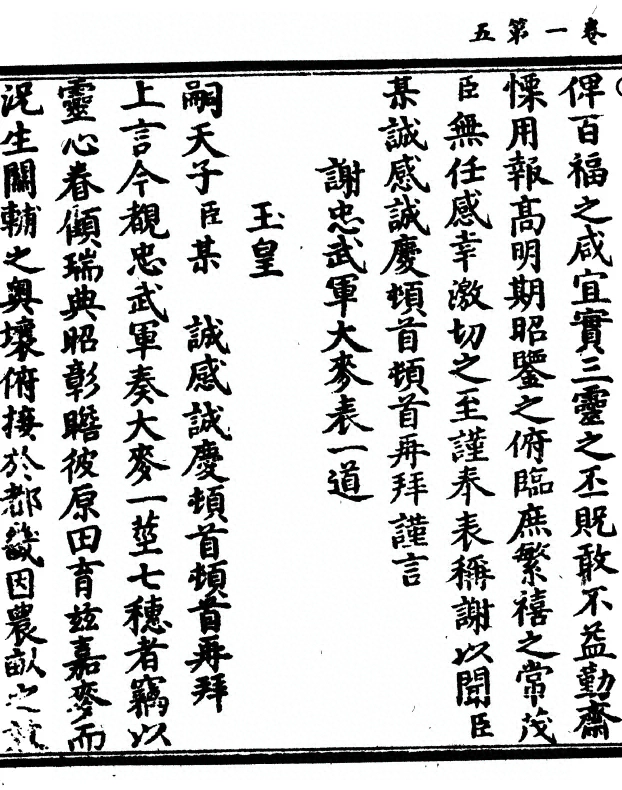 卷一第五
俾百福之咸宜實三靈之丕貺敢不益勤齋
慄用報高明期昭鑒之俯臨庶繁禧之常茂
臣無任感幸激切之至謹奉表稱謝以聞臣
某誠感誠慶頓首頓首再拜謹言
謝忠武軍大麥表一道
玉皇
嗣天子臣某 誠感誠慶頓首頓首再拜
上言今覩忠武軍奏大麥一莖七穗者竊以
靈心眷傾瑞典昭彰瞻彼原田育兹嘉麥而
況生關輔之奥壤俯接於都畿因農畝之